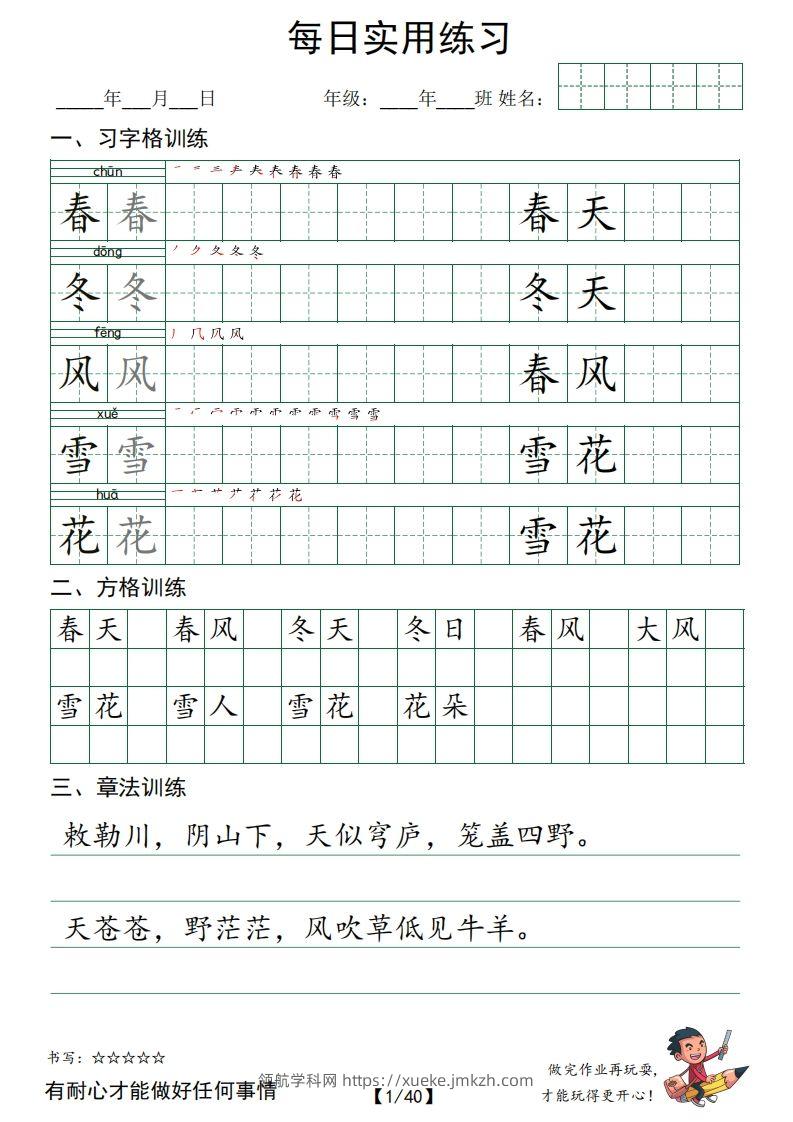 每日实用练习
_____年___月___日 年级：____年____班 姓名：
一、习字格训练
chūn
春 春 春 天
dōng
冬 冬 冬 天
fēng
风 风 春 风
xuě
雪 雪 雪 花
huā
花 花 雪 花
二、方格训练
春天 春风 冬天 冬日 春风 大风
雪花 雪人 雪花 花朵
三、章法训练
敕勒川，阴山下，天似穹庐，笼盖四野。
天苍苍，野茫茫，风吹草低见牛羊。
书写：☆☆☆☆☆
有耐心才能做好任何事情
领航学科网 https://xueke.jmkzh.com
【1/40】
做完作业再玩耍，
才能玩得更开心！